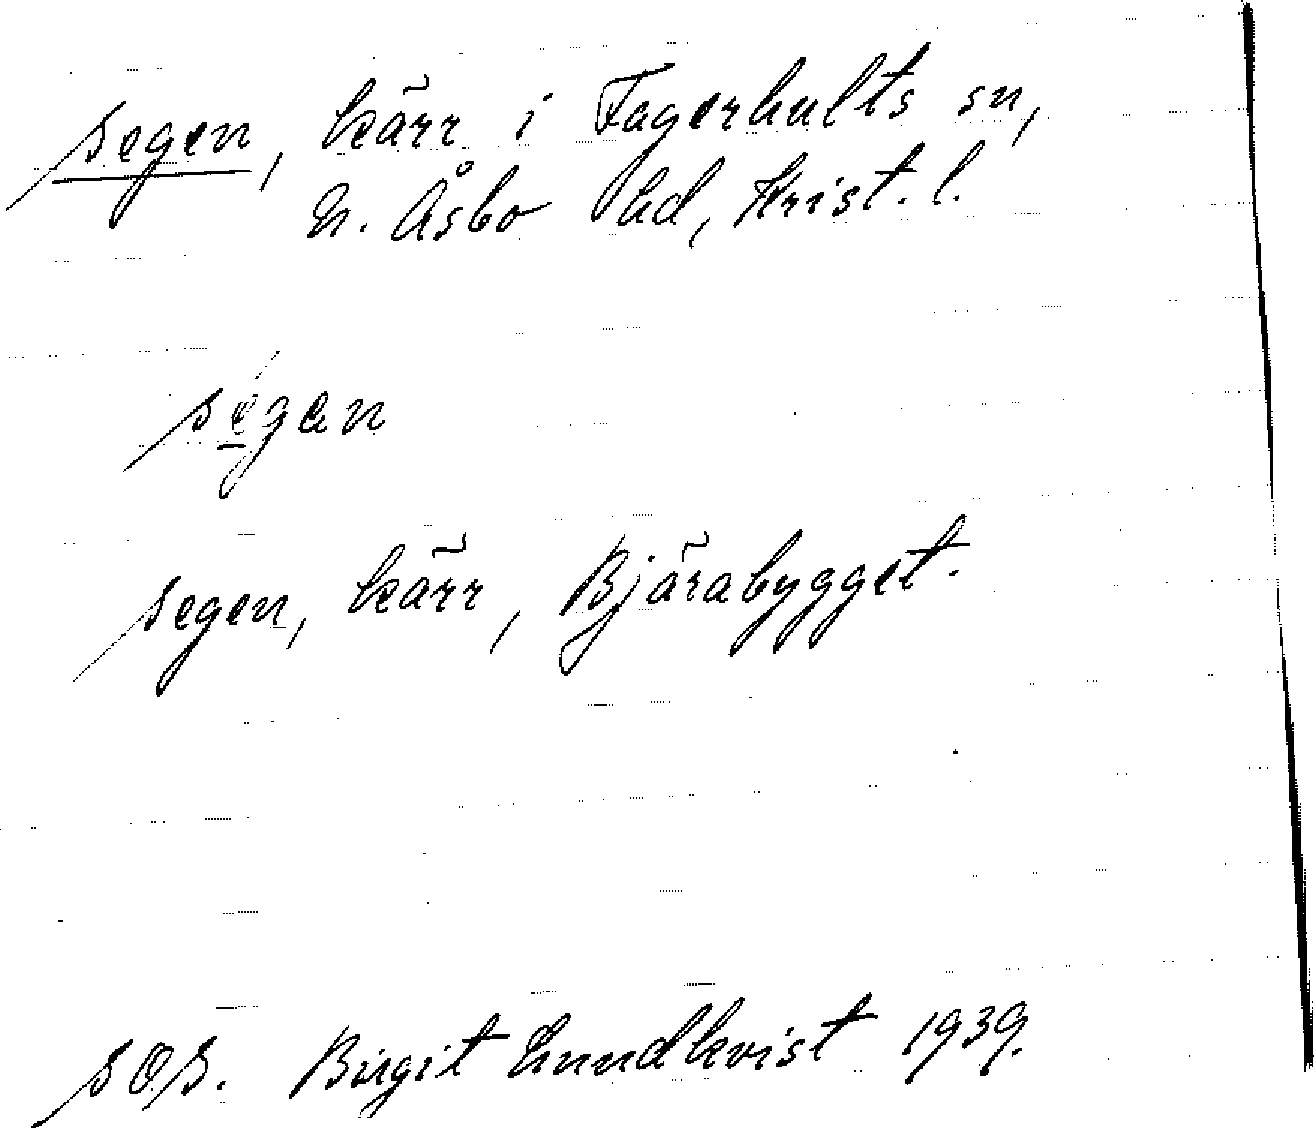 segen, kärr i Fagerhults sn,
N. Åsbo hd, Krist. l.
segen
segen, kärr, Bjärabygget.
s.o.s. Birgit Lundkvist 1939.